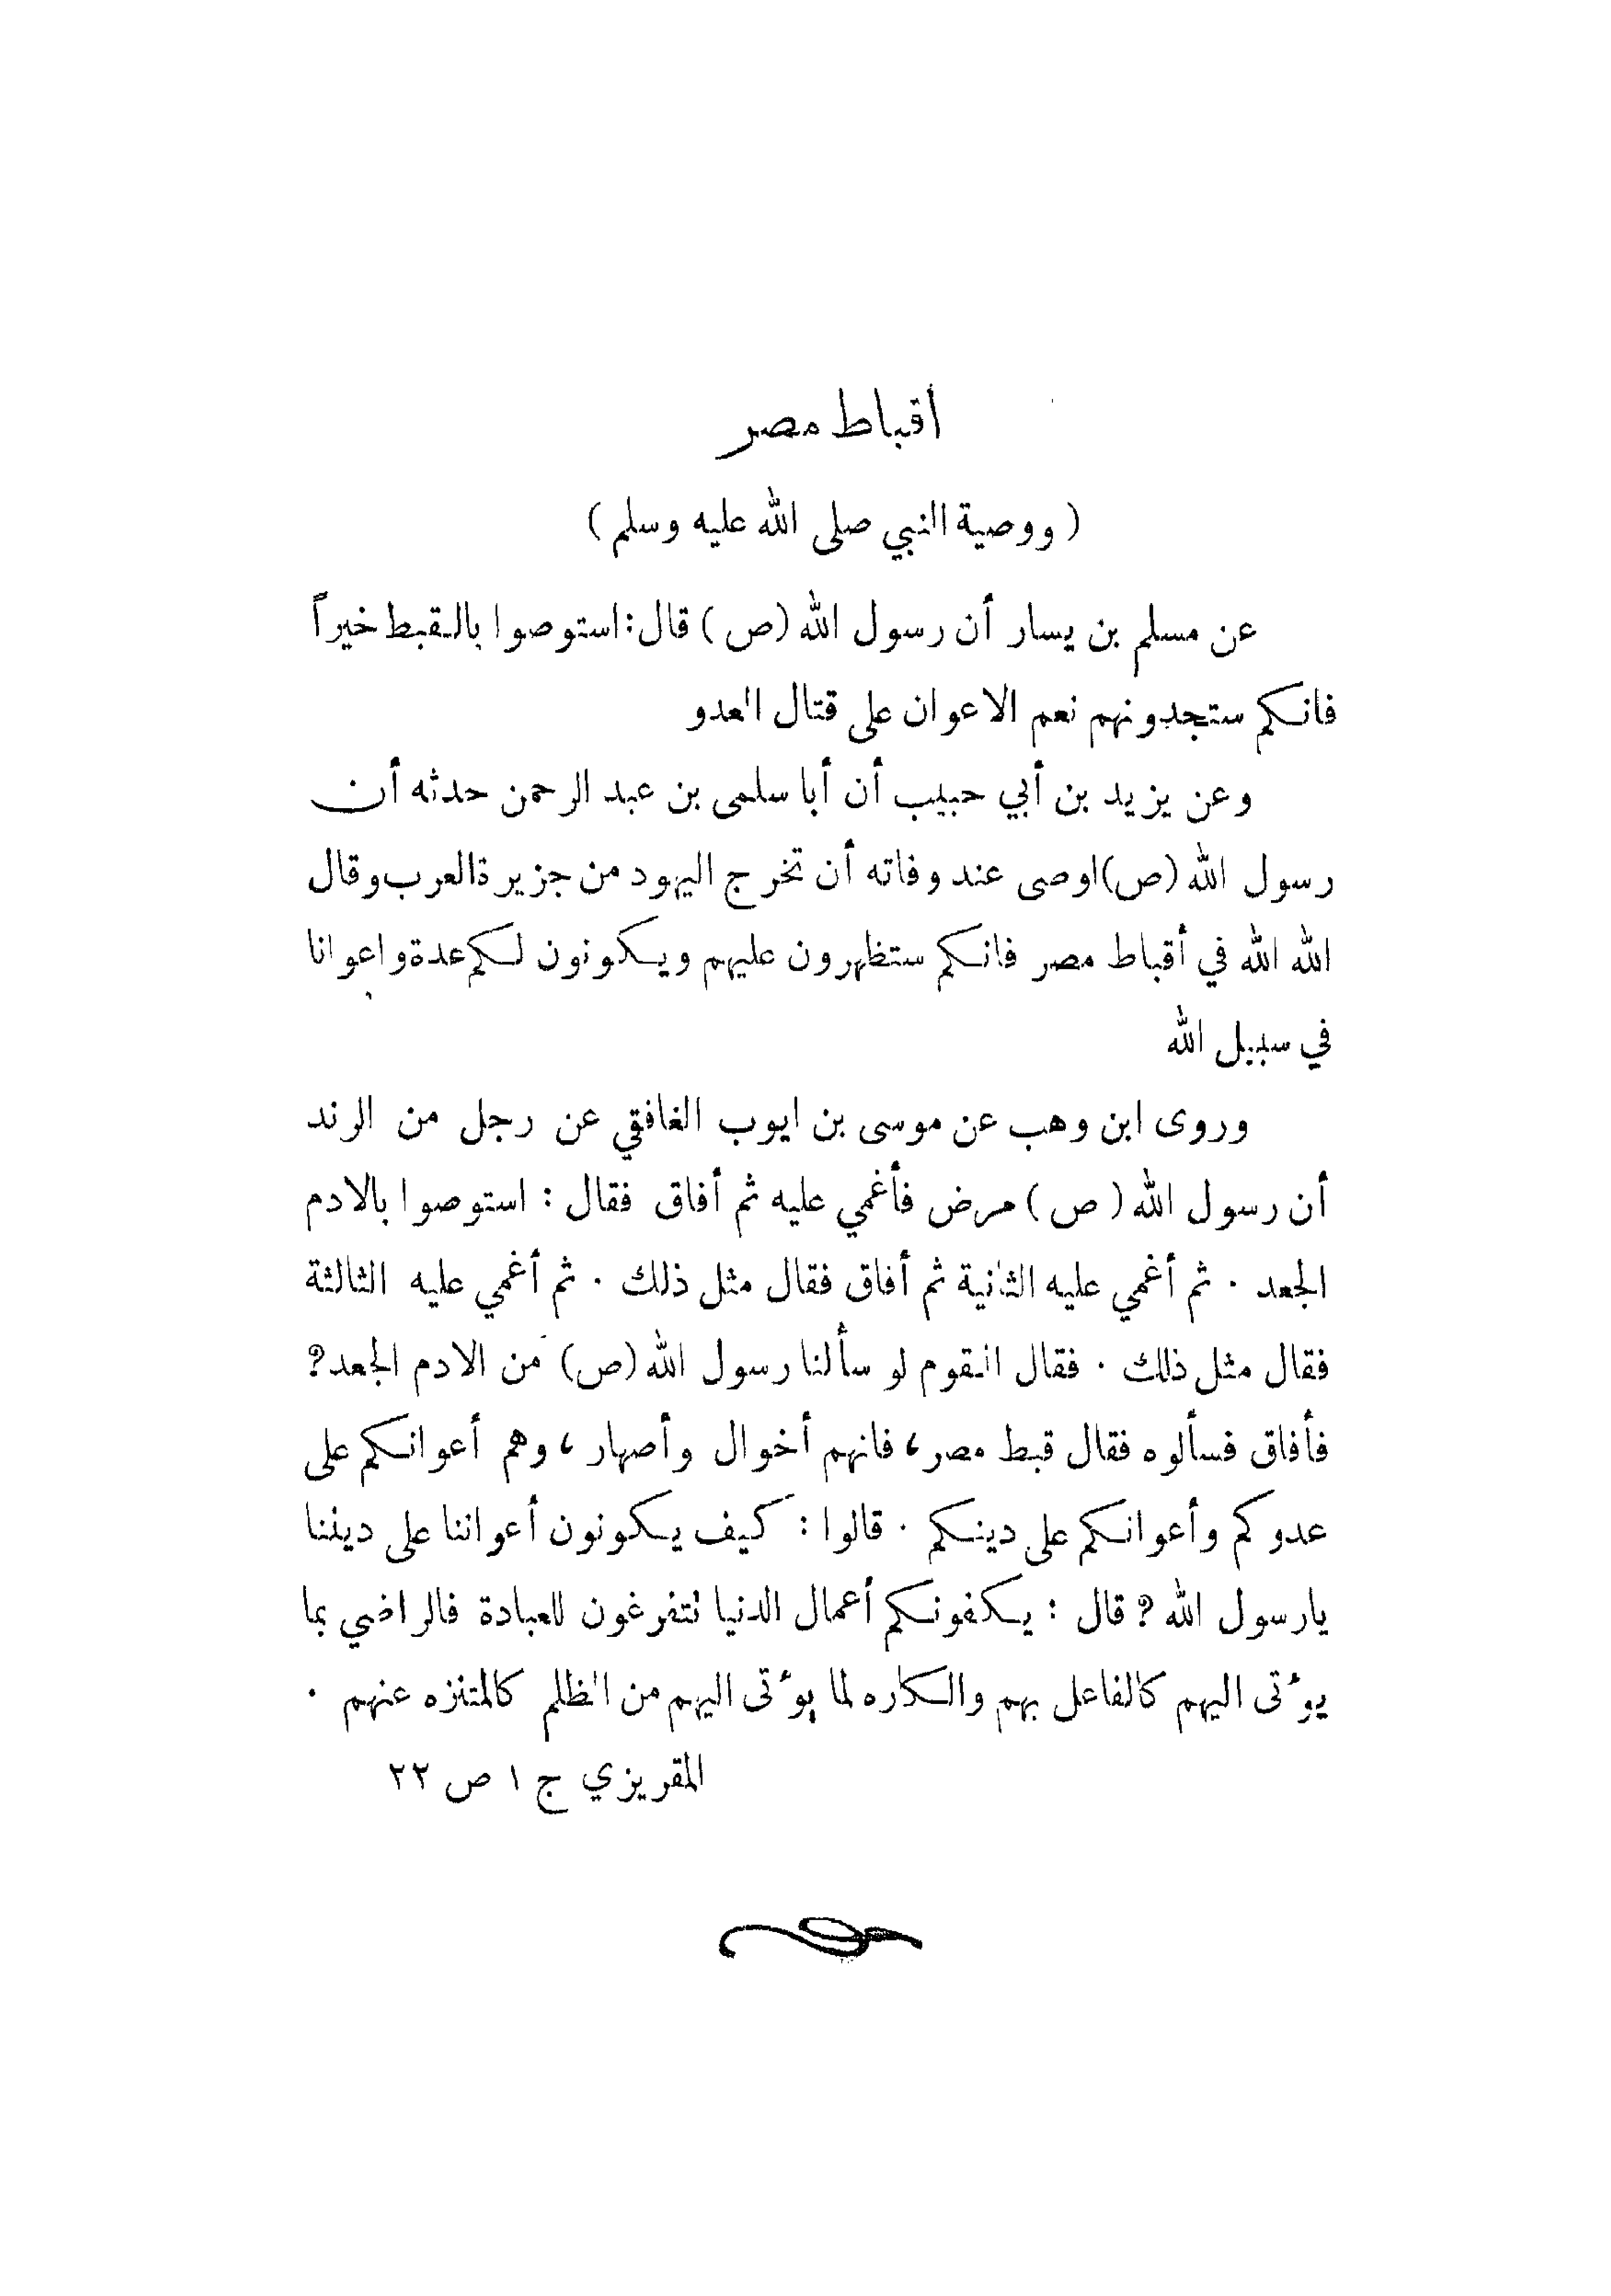 أقباط مصر
( ووصية النبي صلى الله عليه وسلم )
عن مسلم بن يسار أن رسول الله (ص) قال: استوصوا بالقبط خيراً
فانكم ستجدونهم نعم الاعوان على قتال العدو
وعن يزيد بن أبي حبيب أن أبا سلمى بن عبد الرحمن حدثه أن
رسول الله (ص) اوصى عند وفاته أن تخرج اليهود من جزيرة العرب وقال
الله الله في أقباط مصر فانكم ستظهرون عليهم ويكونون لكم عدة واعوانا
في سبيل الله
وروى ابن وهب عن موسى بن ايوب الغافقي عن رجل من الرند
أن رسول الله ( ص ) مرض فأغمي عليه ثم أفاق فقال : استوصوا بالادم
الجعد . ثم أغمي عليه الثانية ثم أفاق فقال مثل ذلك . ثم أغمي عليه الثالثة
فقال مثل ذلك . فقال القوم لو سألنا رسول الله (ص) من الادم الجعد؟
فأفاق فسألوه فقال قبط مصر، فانهم أخوال وأصهار ، وهم أعوانكم على
عدوكم وأعوانكم على دينكم . قالوا : كيف يكونون أعواننا على ديننا
يارسول الله ؟ قال : يكفونكم أعمال الدنيا نتفرغون للعبادة فالراضي بما
يؤتى اليهم كالفاعل بهم والكاره لما يؤتى اليهم من الظلم كالمتنزه عنهم .
المقريزي ج ١ ص ٢٢